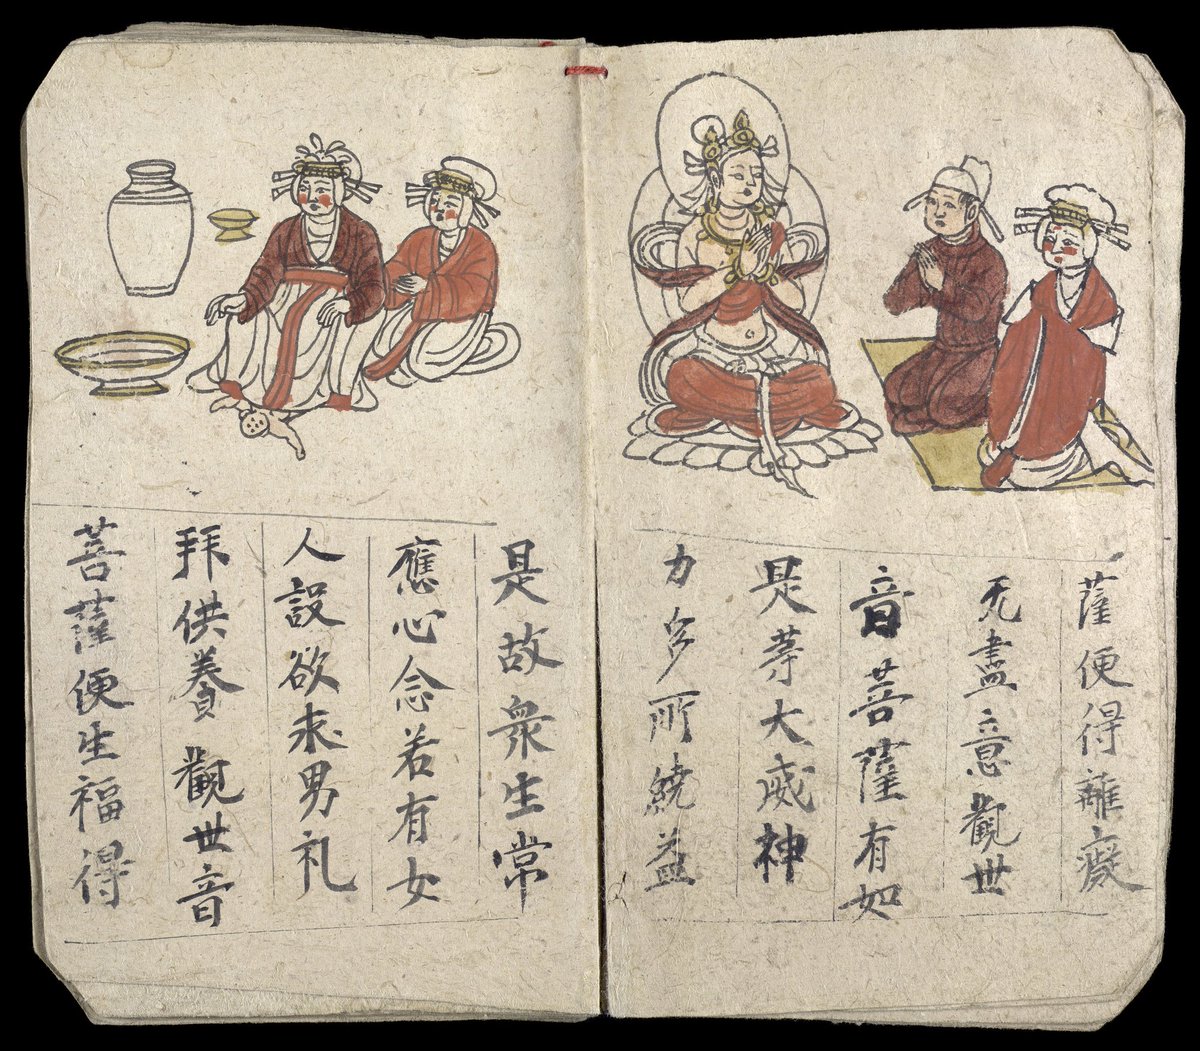 薩便得離癡
无盡意觀世
音菩薩有如
是等大威神
力多所繞益
是故衆生常
應心念若有女
人設欲求男礼
拜供養觀世音
菩薩便生福得